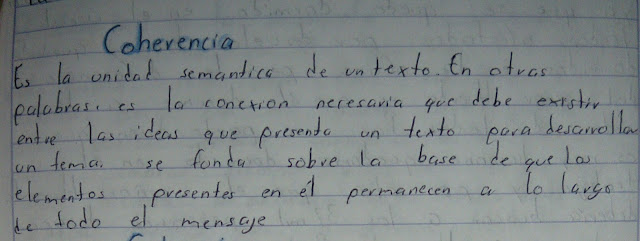 Coherencia
Es la unidad semantica de un texto. En otras
palabras, es la conexion necesaria que debe existir
entre las ideas que presenta un texto para desarrollar
un tema. se funda sobre la base de que los
elementos presentes en él permanecen a lo largo
de todo el mensaje